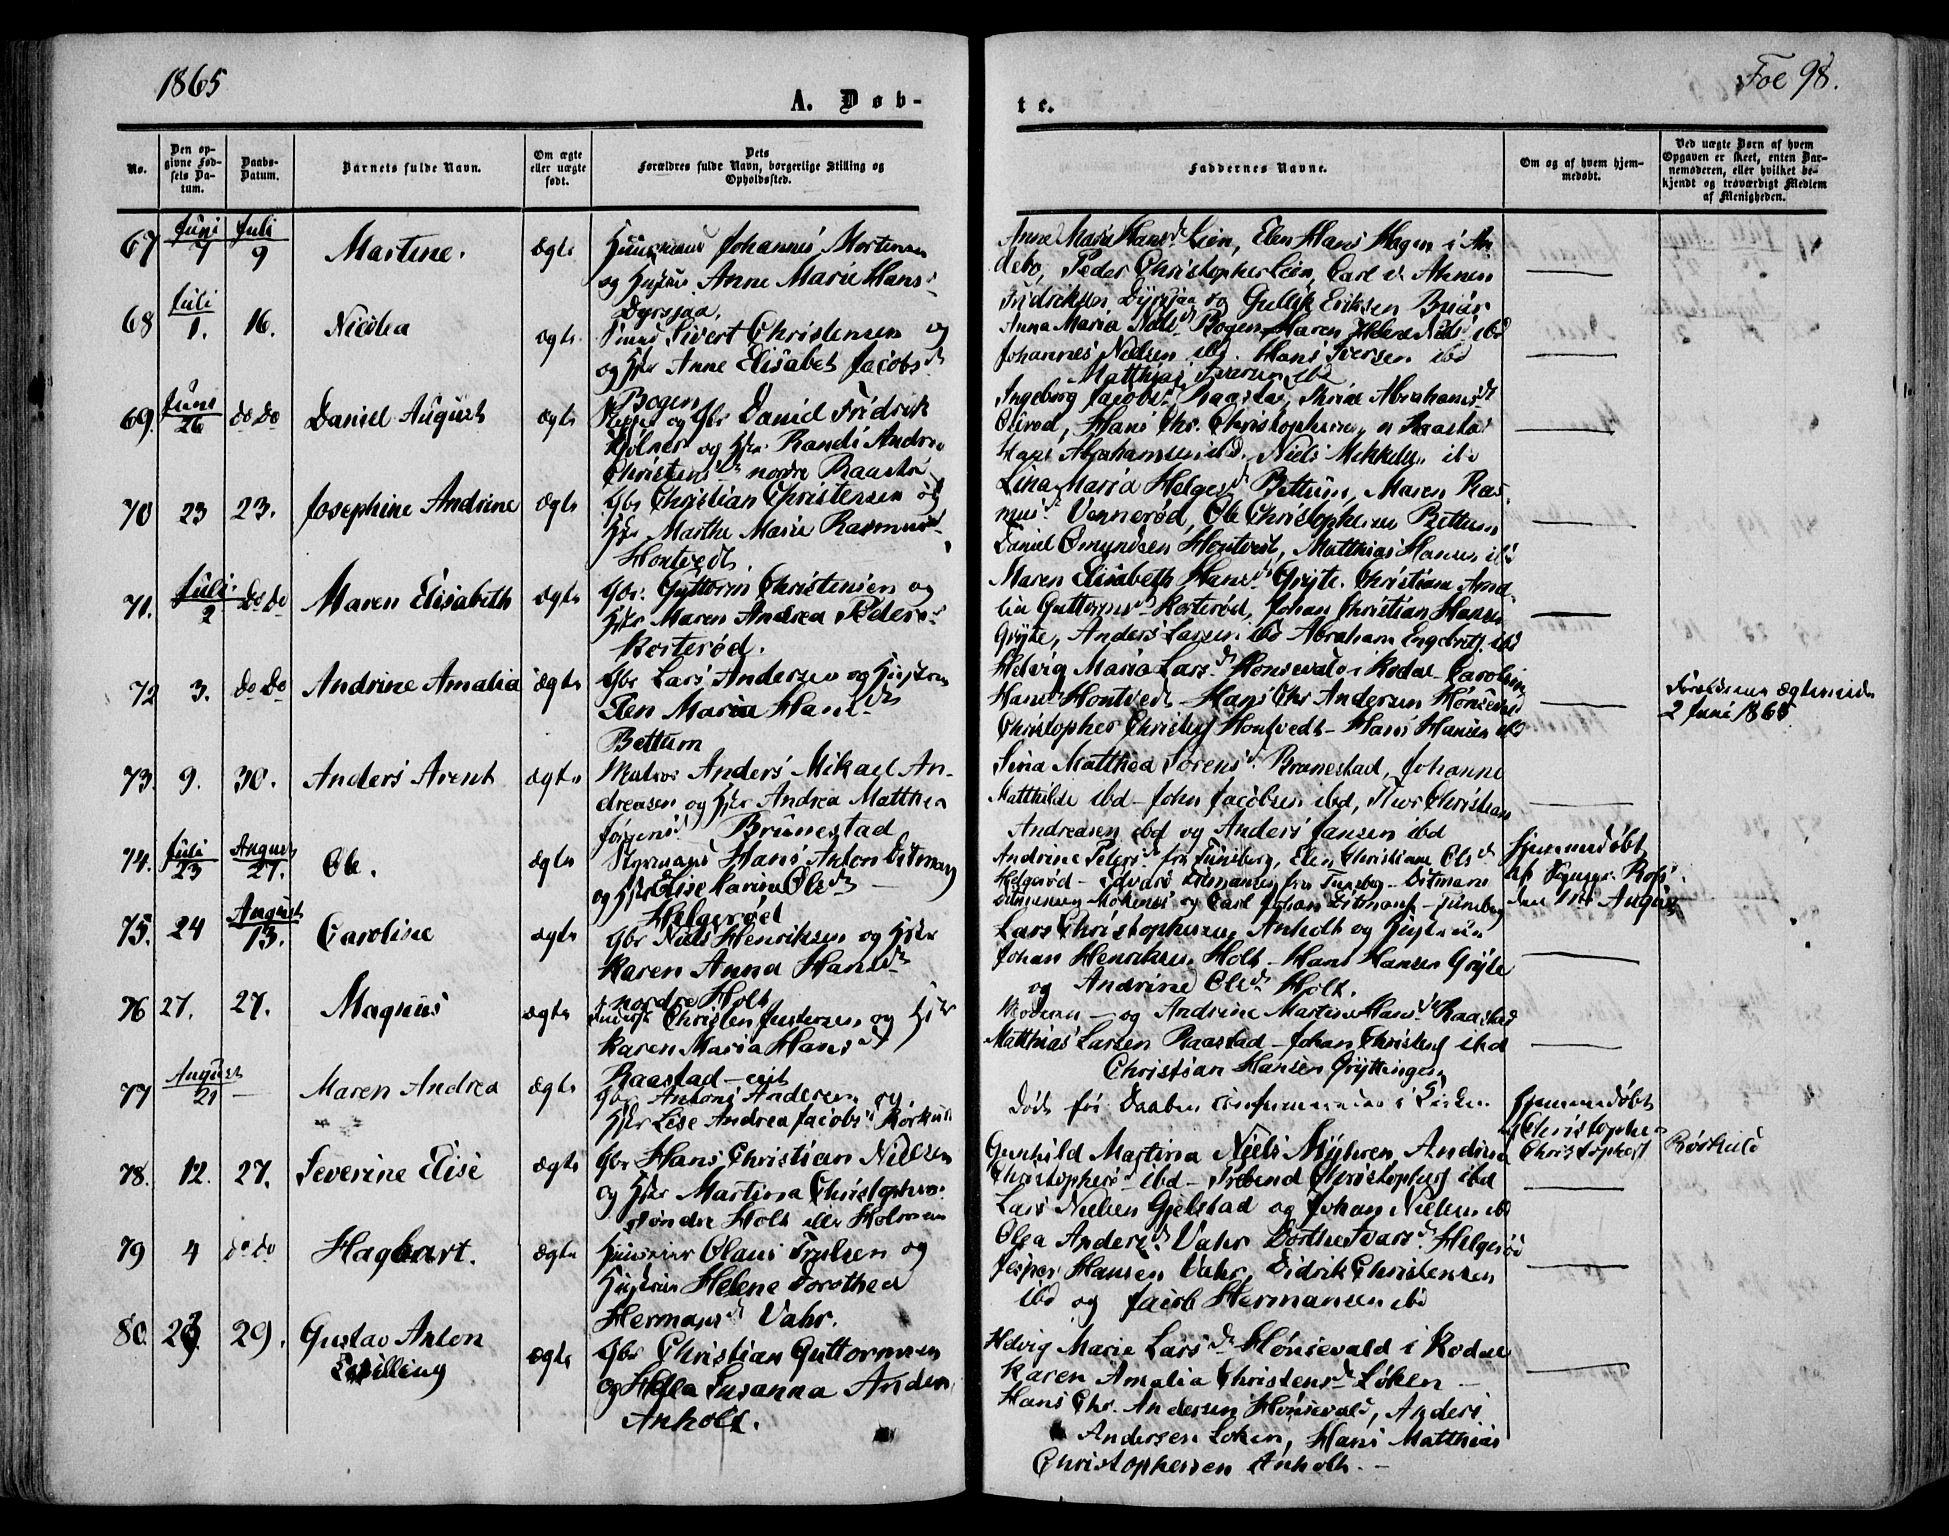 1865
Foe 98.
A. Døb-
te.
No.
Den op-
givne Fød-
sels Da-
tum.
Daabs-
Datum.
Barnets fulde Navn.
Om ægte
eller uægte
født.
Dets
Forældres fulde Navn, borgerlige Stilling og
Opholdssted.
Faddernes Navne.
Om og af hvem hjem-
medøbt.
Ved uægte Børn af hvem
Opgaven er skeet, enten Bar-
nemoderen, eller hvilket be-
kjendt og troværdigt Medlem
af Menigheden.
67
Juni
7
Juli
9
Martine.
ægte
Huusmand Johannes Mortensen
og Hustru Anne Marie Hans
Dyrsjaa.
Anne Marie Hansd Lien, Elen Hans Hagen i An
debo, Peder Christophersen Lien, Carl
Fridriksen Dyrsjaa og Gullik Eriksen
68
Juli
1.
16.
Nicolea
ægte
Sivert Christensen og
og Hstr Anne Elisabet Jacobsd
Bogen
Anna Maria Nilsd Bogen, Maren Helene Nilsd ibd
Johannes Nielsen ibd. Hans Iversen ibd
Matthias Iversen ibd
69.
Juni
26
do do
Daniel August
ægte
og Gbr Daniel Fridrik
og Hstr Randi Andrea
Christensd nordre Raastad
Ingeborg Jacobsd Raastad, Abrahamsd
Hans Chr. Christophersen, n Raastad
Hans Abrahamsen ibd. Niels Mikkelsen ibd
70
23
23.
Josephine Andrine
ægte
Gbr Christian Christensen og
Hstr Marthe Marie Rasmusd
Hontvedt.
Lina Maria Helgesd Bettum, Maren Ras
musd Vennerød, Ole Christophersen Bettum
Daniel Omundsen Hontvedt, Matthias Hansen ibd
71.
Juli
2
do do
Maren Elisabeth
ægte
Gbr. Guttorm Christensen og
Hstr Maren Andrea Peders
Korterød.
Maren Elisabeth Hansd Gryte. Christiane Ama
lia Guttormsd Korterød, Johan Christian Hansen
Gryte, Anders Larsen ibd Abraham Engebretsen ibd
72
3.
do do
Andrine Amalia
ægte
Gbr Lars Andersen og Hustru
Elen Maria Hansd
Bettum
Helvig Maria Larsd Hønsevald i Kodal Caroline
Hansd Hontvedt - Hans Chr Andersen Hønsevald
Christopher Christens Hontvedt - Hans Hansen ibd
Forældrene ægteviede
2 Juni 1865
73.
9.
30.
Anders Arent
ægte
Matros Anders Mikael An-
dreasen og Hstr Andrea Matthea
Jørgensd Brunestad
Sina Matthea Sørensd Brunestad, Johanne
Matthilde ibd - John Jacobsen ibd, Thor Christian
Andreasen ibd og Anders Jansen ibd
74.
Juli
23
August
27.
Ole.
ægte
Styrmand Hans Anton Ditmans
og Hstr Elise Karine Olsd
Helgerød
Andrine Petersd fra Tunsberg, Elen Christiane Olsd
Helgerød - Edvard Ditmansen fra Tunsberg - Ditmann
og Carl Johan Ditmans - Tunsberg
Hjemmedøbt
den 1ste August
75.
24
August
13.
Caroline
ægte
Gbr Niels Henriksen og Hstr
Karen Anna Hansd
nordre Holt
Lars Christophersen Anholt og Hustru
Johan Henriksen Holt - Hans Hansen Gryte
og Andrine Olsd Holt.
76
27.
27.
Magnus
ægte
Christen Justersen og Hstr
Karen Maria Hansd
Raastad - eie
Moderen - og Andrine Martine Hansd Raastad
Matthias Larsen Raastad - Johan Christens ibd
Christian Hansen Gryttingen
77
August
21
-
Maren Andrea
ægte
Gbr Antoni Andersen og
Hstr Lise Andrea Jacobsd Rørkull
Død før Daabens Confirmation i Kirken
Hjemmedøbt
af Christopher
Christophers
Rørkull
78.
12.
27.
Severine Elise
ægte
Gbr Hans Christian Nielsen
og Hstr Martina Christophers
søndre Holt eller Holmen
Gunhild Martina Niels Myhren, Andrine
Christophersd ibd - Christophers ibd
Lars Nielsen Gjelstad og Johan Nielsen ibd
79
4
do do
Hagbart.
ægte
Olaus Trulsen og
Hustru Helene Dorothea
Hermansd Vahr.
Olga Andersd Vahr Dorthe Ivarsd Helgerød
Jesper Hansen Vahr, Didrik Christensen
ibd og Jacob Hermansen ibd
80.
23
29.
Gustav Anton
Schilling
ægte
Gbr Christian Guttormsen
og Helle Susanna Anders
Anholt.
Helvig Marie Larsd Hønsevald i Kodal
Karen Amalia Christensd Løken -
Hans Chr. Andersen Hønsevald, Anders
Andersen Løken, Hans Matthias
Christophersen Anholt. -